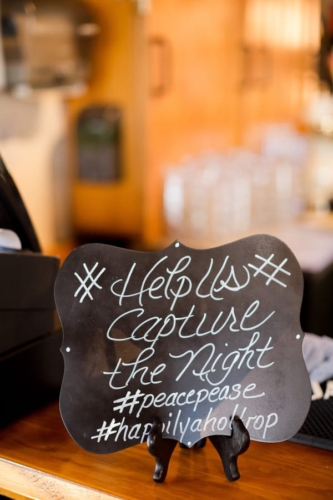 # Help Us #
Capture
the Night
#peacepease
#happilyaholtrop